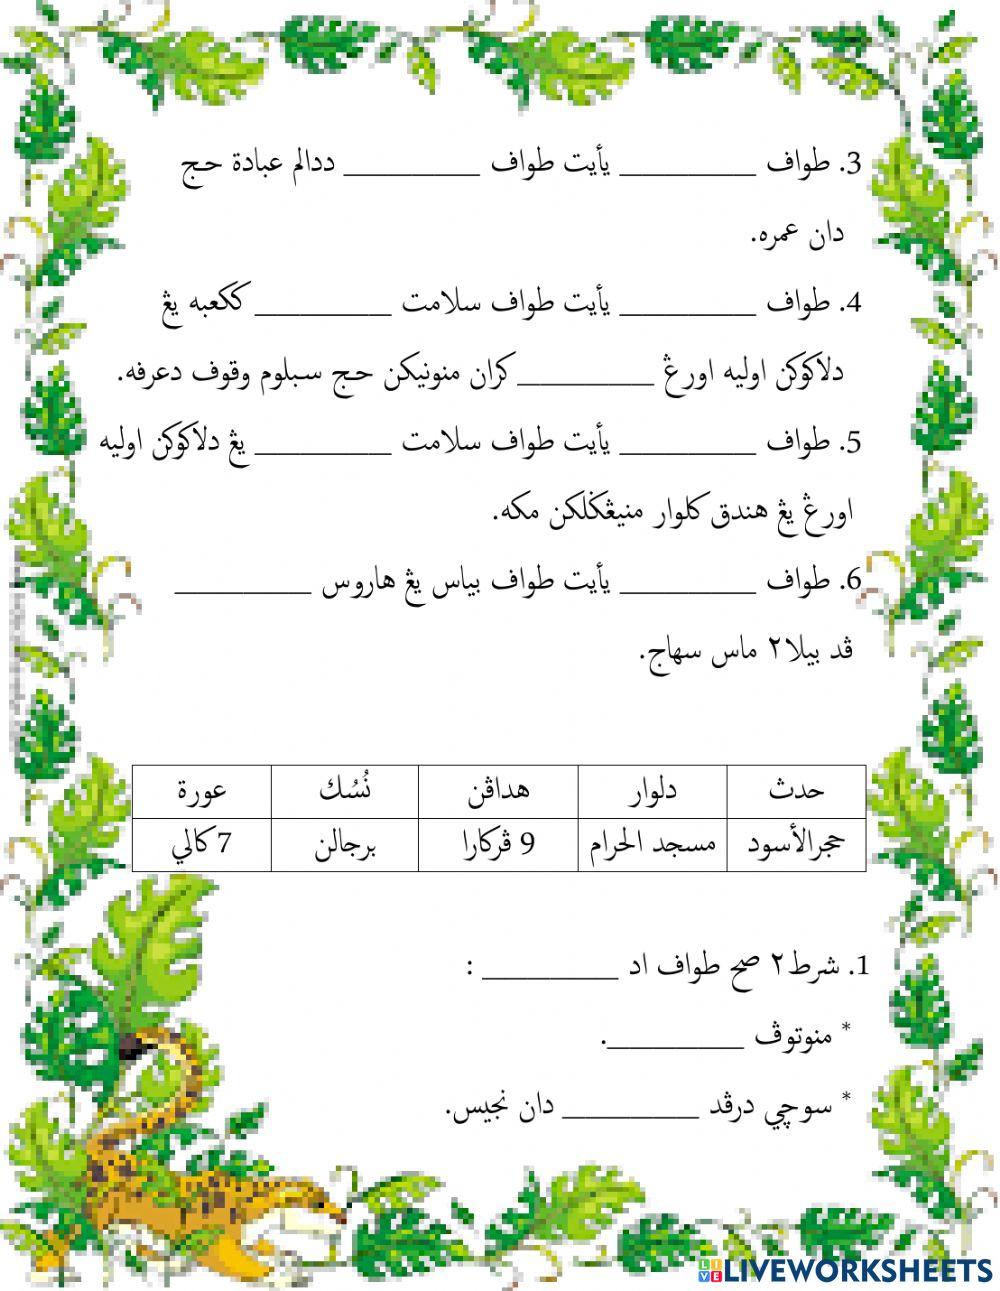 3. طواف _________ يأيت طواف _________ ددالم عبادة حج
دان عمره.
4. طواف _________ يأيت طواف سلامت _________ ككعبه يڠ
دلاكوكن اوليه اورڠ _________ كران منونيكن حج سبلوم وقوف دعرفه.
5. طواف _________ يأيت طواف سلامت _________ يڠ دلاكوكن اوليه
اورڠ يڠ هندق كلوار منيڠݢلكن مكه.
6. طواف _________ يأيت طواف بياس يڠ هاروس _________
ڤد بيلا٢ ماس سهاج.
حدث دلوار هداڤن نُسُك عورة
حجرالأسود مسجد الحرام 9 ڤركارا برجالن 7 كالي
1. شرط٢ صح طواف اد _________ :
* منوتوڤ _________.
* سوچي درڤد _________ دان نجيس.
LIVEWORKSHEETS